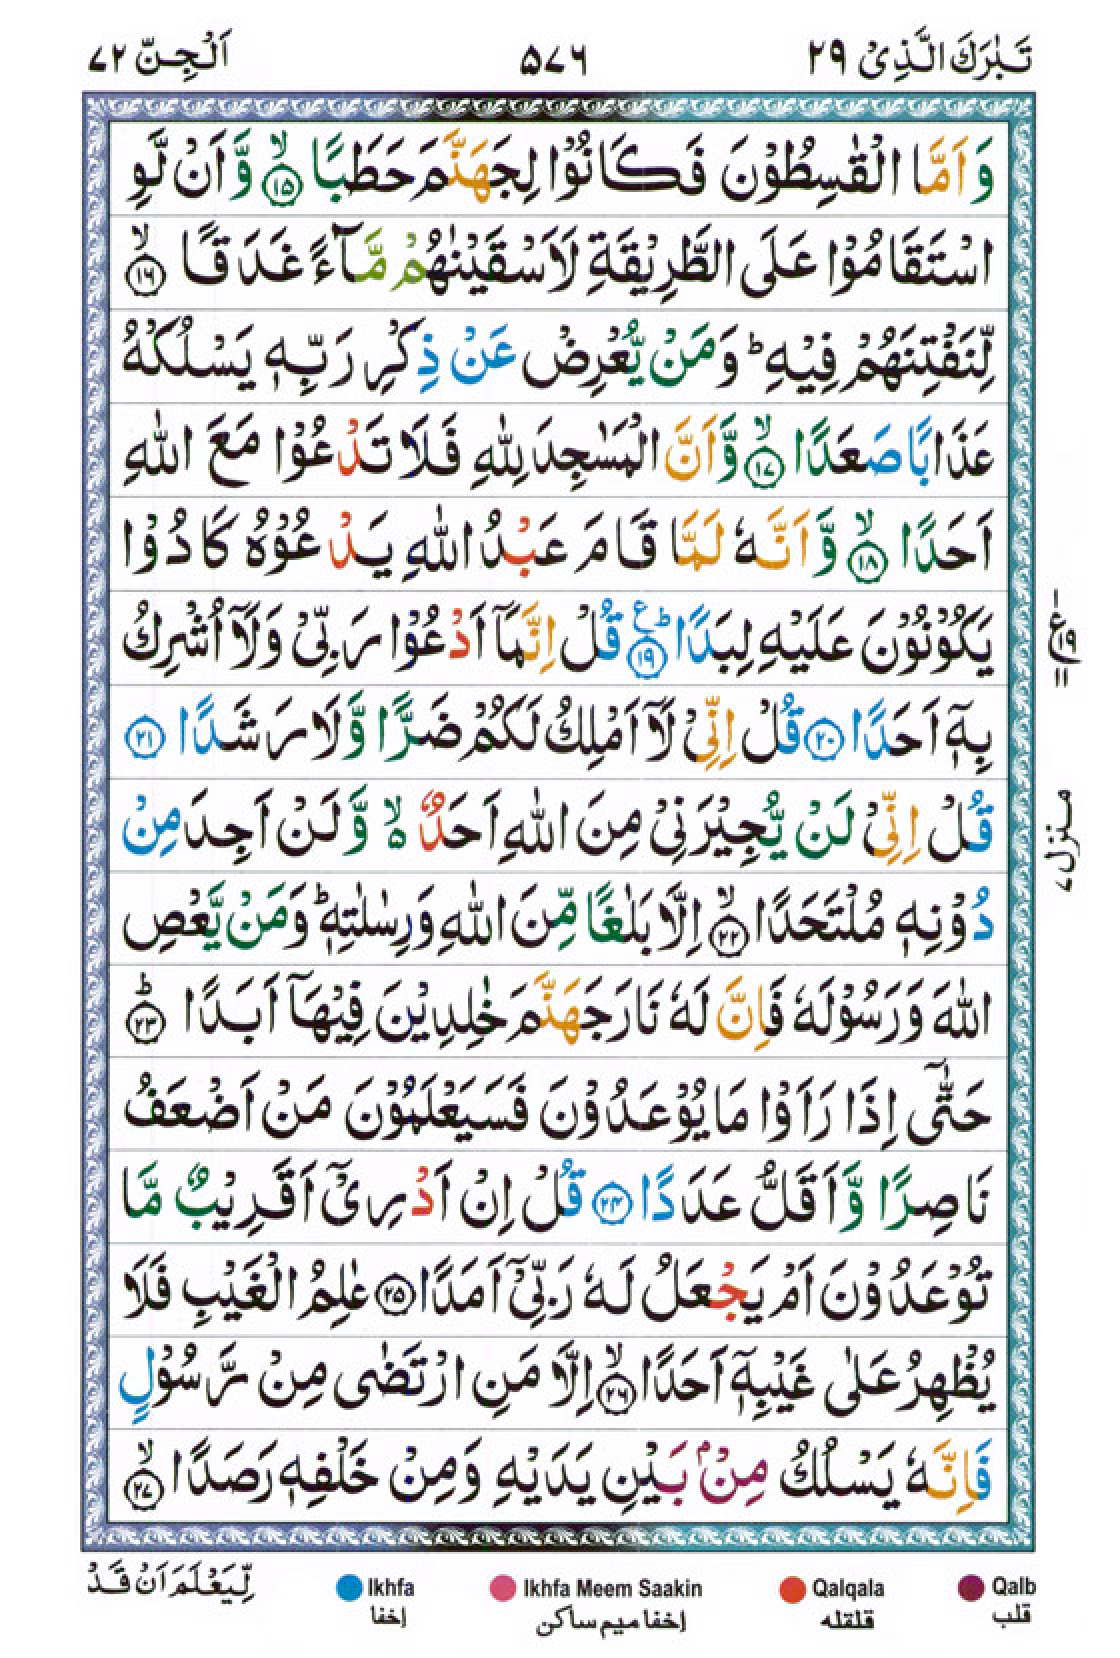 تَبٰرَكَ الَّذِىْ ٢٩
٥٧٦
اَلْجِنّ ٧٢
وَاَمَّا الْقٰسِطُوْنَ فَكَانُوْا لِجَهَنَّمَ حَطَبًا ۙ‏ ١٥ وَّاَنْ لَّوِ
اسْتَقَامُوْا عَلَى الطَّرِيْقَةِ لَاَسْقَيْنٰهُمْ مَّآءً غَدَقًا ۙ‏ ١٦
لِّنَفْتِنَهُمْ فِيْهِ ؕ وَمَنْ يُّعْرِضْ عَنْ ذِكْرِ رَبِّهٖ يَسْلُكْهُ
عَذَابًا صَعَدًا ۙ‏ ١٧ وَّاَنَّ الْمَسٰجِدَ لِلّٰهِ فَلَا تَدْعُوْا مَعَ اللّٰهِ
اَحَدًا ۙ‏ ١٨ وَّاَنَّهٗ لَمَّا قَامَ عَبْدُ اللّٰهِ يَدْعُوْهُ كَادُوْا
يَكُوْنُوْنَ عَلَيْهِ لِبَدًا ؕع‏ ١٩ قُلْ اِنَّمَآ اَدْعُوْا رَبِّىْ وَلَآ اُشْرِكُ
بِهٖۤ اَحَدًا ٢٠ قُلْ اِنِّىْ لَاۤ اَمْلِكُ لَكُمْ ضَرًّا وَّلَا رَشَدًا ٢١
قُلْ اِنِّىْ لَنْ يُّجِيْرَنِىْ مِنَ اللّٰهِ اَحَدٌ ۙ۬ وَّلَنْ اَجِدَ مِنْ
دُوْنِهٖ مُلْتَحَدًا ۙ‏ ٢٢ اِلَّا بَلٰغًا مِّنَ اللّٰهِ وَرِسٰلٰتِهٖ ؕ وَمَنْ يَّعْصِ
اللّٰهَ وَرَسُوْلَهٗ فَاِنَّ لَهٗ نَارَ جَهَنَّمَ خٰلِدِيْنَ فِيْهَاۤ اَبَدًا ؕ‏ ٢٣
حَتّٰٓى اِذَا رَاَوْا مَا يُوْعَدُوْنَ فَسَيَعْلَمُوْنَ مَنْ اَضْعَفُ
نَاصِرًا وَّاَقَلُّ عَدَدًا ٢٤ قُلْ اِنْ اَدْرِىْۤ اَقَرِيْبٌ مَّا
تُوْعَدُوْنَ اَمْ يَجْعَلُ لَهٗ رَبِّىْۤ اَمَدًا ٢٥ عٰلِمُ الْغَيْبِ فَلَا
يُظْهِرُ عَلٰى غَيْبِهٖۤ اَحَدًا ۙ‏ ٢٦ اِلَّا مَنِ ارْتَضٰى مِنْ رَّسُوْلٍ
فَاِنَّهٗ يَسْلُكُ مِنْۢ بَيْنِ يَدَيْهِ وَمِنْ خَلْفِهٖ رَصَدًا ۙ‏ ٢٧
ع
١٩
منزل ٧
لِّيَعْلَمَ اَنْ قَدْ
Ikhfa
إخفا
Ikhfa Meem Saakin
إخفا ميم ساكن
Qalqala
قلقله
Qalb
قلب